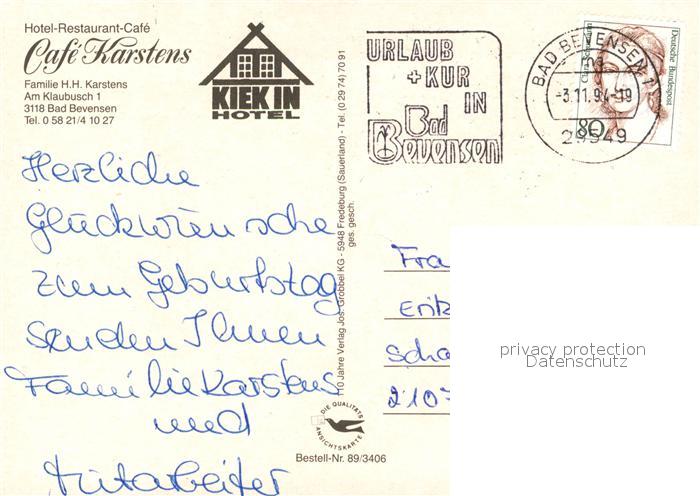 Hotel-Restaurant-Café
Café Karstens
Familie H.H. Karstens
Am Klaubusch 1
3118 Bad Bevensen
Tel. 0 58 21/4 10 27
KIEK IN
HOTEL
URLAUB
+ KUR
IN
Bad
Bevensen
BAD BEVENSEN 1
-3.11.94-19
29549
Deutsche Bundespost
80
Herzliche
Glückwünsche
zum Geburtstag
senden Ihnen
Familie Karstens
und
Mitarbeiter
110 Jahre Verlag Jos. Grobbel KG - 5948 Fredeburg (Sauerland) - Tel. (0 29 74) 70 91
ges. gesch.
DIE QUALITÄTS
ANSICHTSKARTE
Bestell-Nr. 89/3406
Fra
Eritz
Scha
2107
privacy protection
Datenschutz